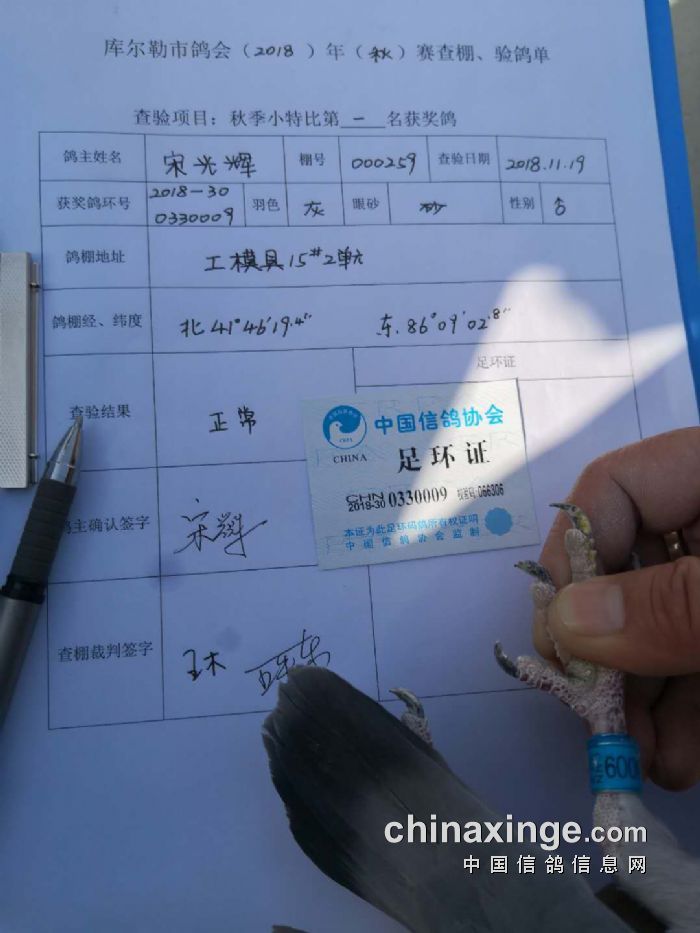 库尔勒市鸽会(2018)年(秋)赛查棚、验鸽单
查验项目:秋季小特比第一名获奖鸽
鸽主姓名 宋光辉 棚号 000259 查验日期 2018.11.19
获奖鸽环号 2018-30 0330009 羽色 灰 眼砂 砂 性别 ♂
鸽棚地址 工模具15#2单元
鸽棚经、纬度 北41°46′19.4″ 东.86°09′02.8″
查验结果 正常
足环证
中国信鸽协会
CHINA
足环证
CHN
2018-30 0330009 校验码:066306
本证为此足环码鸽所有权证明
中国信鸽协会监制
鸽主确认签字
查棚裁判签字 王木
chinaxinge.com
中国信鸽信息网